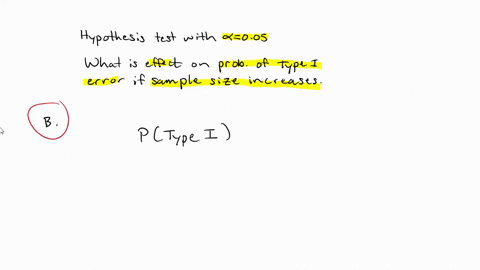 Hypothesis test with α=0.05
What is effect on prob. of Type I
error if sample size increases.
B.
P(Type I)